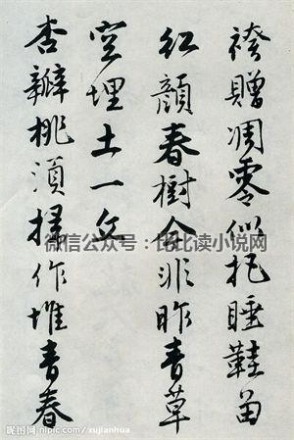 贈凋零似把睡鞋留
紅顏春樹今非昨青草
空埋土一丘
杏瓣桃須掃作堆青春
微信公众号：比比读小说网
昵图网 nipic.com/xujianhua